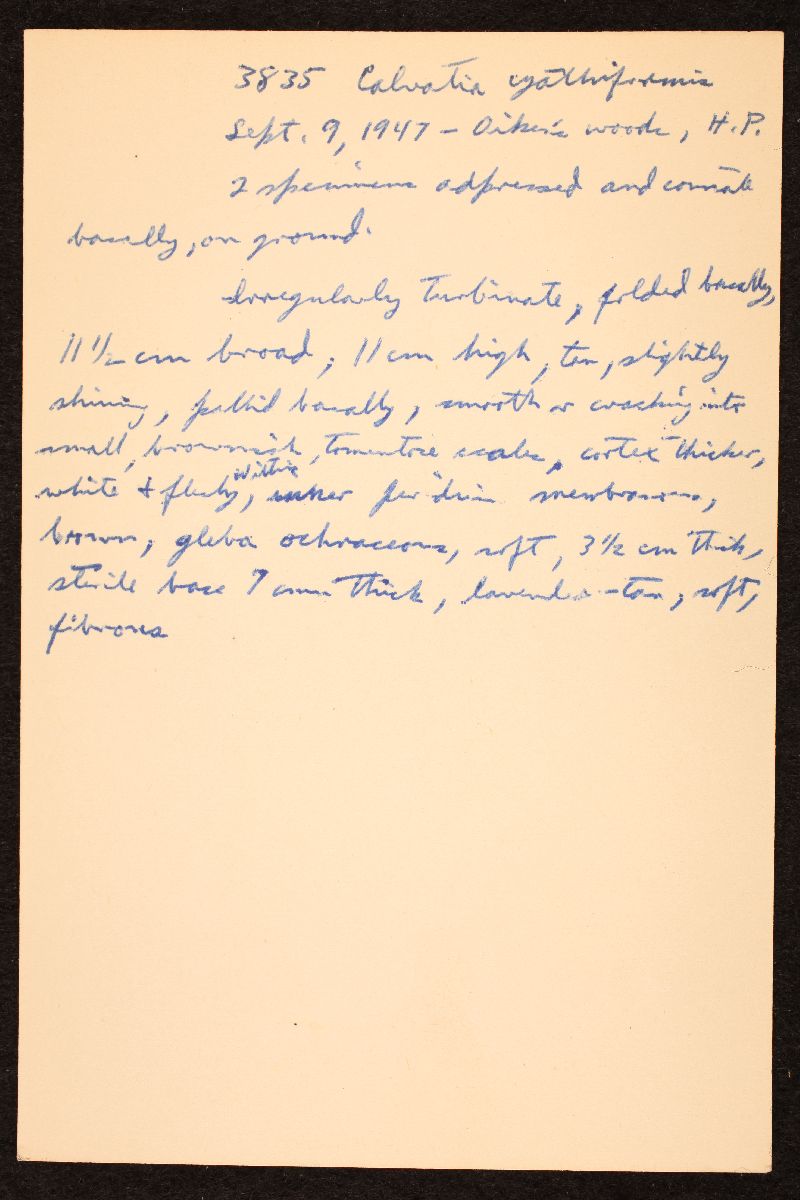 3835 Calvatia cyathiformis
Sept. 9, 1947 - woods, H.P.
2 specimens adpressed and connate
basally, on ground.
Irregularly turbinate, folded basally,
11 1/2 cm broad, 11 cm high, tan, slightly
shining, pallid basally, smooth or cracking into
small, brownish, tomentose scales, cortex thicker,
within
white & fleshy, inner peridium membranous,
brown, gleba ochraceous, soft, 3 1/2 cm thick,
sterile base 7 mm thick, lavender-tan, soft,
fibrous